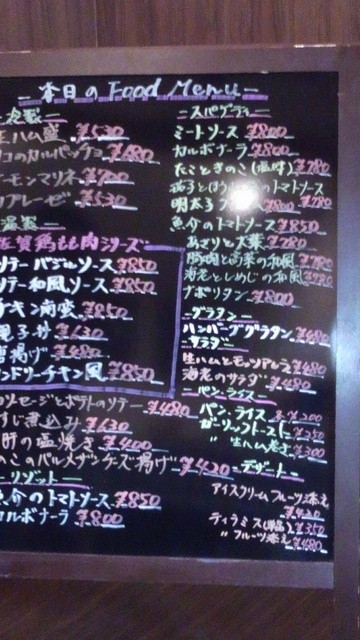 本日のFood Menu
冷製
生ハム盛 ¥530
タコのカルパッチョ ¥480
サーモンマリネ ¥700
¥630
温製
佐賀鶏もも肉シリーズ
ソテー バジルソース ¥850
ソテー 和風ソース ¥850
チキン南蛮 ¥850
親子丼 ¥630
唐揚げ ¥480
タンドリーチキン風 ¥850
ソーセージとポテトのソテー ¥480
すじ煮込み ¥630
肝の塩焼き ¥400
きのこのパルメザンチーズ揚げ ¥420
リゾット
魚介のトマトソース ¥850
カルボナーラ ¥800
スパゲティ
ミートソース ¥800
カルボナーラ ¥800
たこときのこ(塩味) ¥780
茄子とほうれん草のトマトソース
明太子 ¥780
魚介のトマトソース ¥850
あさりと大葉 ¥780
豚肉と高菜の和風 ¥780
海老としめじの和風
ナポリタン ¥800
グラタン
ハンバーググラタン ¥480
サラダ
生ハムとモッツァレラ ¥480
海老のサラダ ¥480
パン・ライス
パン、ライス 各¥200
ガーリックトースト ¥250
〃 生ハム巻き ¥300
デザート
アイスクリーム フルーツ添え
¥420
ティラミス(単品) ¥350
〃 フルーツ添え ¥480